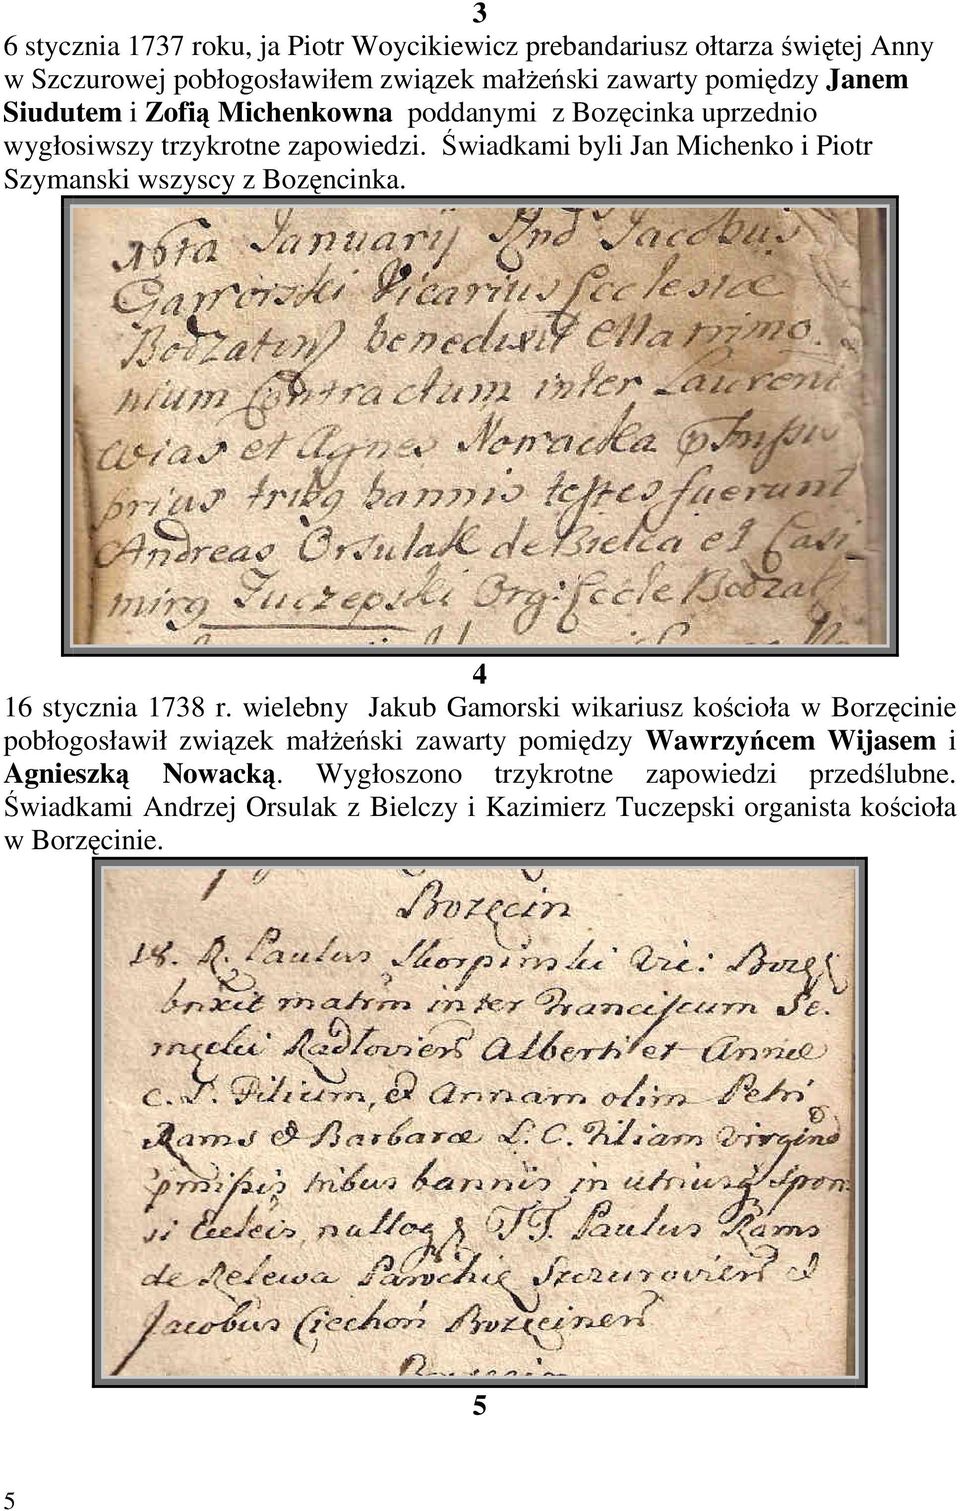 3
6 stycznia 1737 roku, ja Piotr Woycikiewicz prebandariusz ołtarza świętej Anny
w Szczurowej pobłogosławiłem związek małżeński zawarty pomiędzy Janem
Siudutem i Zofią Michenkowna poddanymi z Bozęcinka uprzednio
wygłosiwszy trzykrotne zapowiedzi. Świadkami byli Jan Michenko i Piotr
Szymanski wszyscy z Bozęncinka.
16ta Januarij Rnd Jacobus
Gamorski Vicarius Ecclesiæ
Bodzatins benedixit Matrimo.
nium Contractum inter Laurent
Wias et Agnes Nowacka
prius tribq bannis testes fuerunt
Andreas Orsulak de Bielca et Casi-
mirq Tuczepski Org: Eccle Bodzat
4
16 stycznia 1738 r. wielebny Jakub Gamorski wikariusz kościoła w Borzęcinie
pobłogosławił związek małżeński zawarty pomiędzy Wawrzyńcem Wijasem i
Agnieszką Nowacką. Wygłoszono trzykrotne zapowiedzi przedślubne.
Świadkami Andrzej Orsulak z Bielczy i Kazimierz Tuczepski organista kościoła
w Borzęcinie.
Bozęcin
18. R. Paulus Skorpinski Vic: Bozęę
bnxit matrm inter Franciscum Se.
męcki Radłoviens Alberti et Annæ
c. L. Filium, & Annam olim Petri
Rams & Barbaræ L. C. Filiam Virgins
pmissis tribus bannis in utriusq Spon-
si Eccleis, nulloq TT. Paulus Rams
de Relewa Parochię Szczuroviens &
Jacobus Ciechoń Bozęcinens
5
5